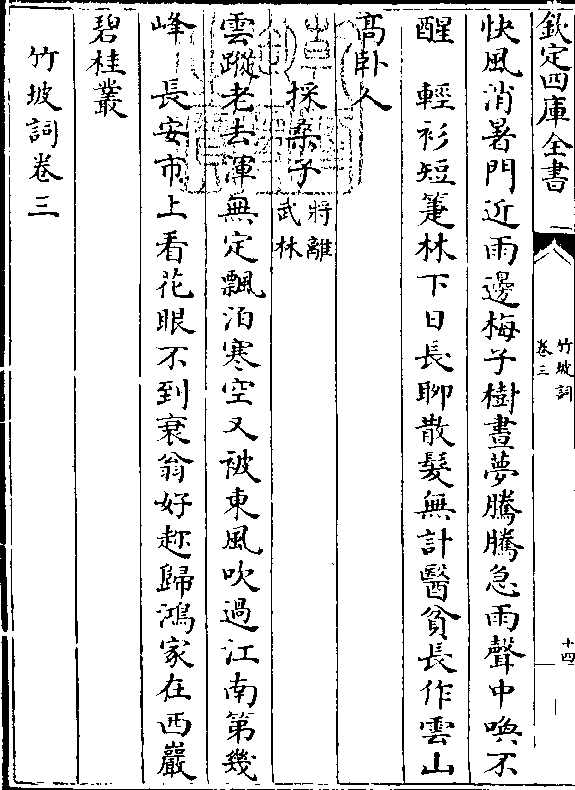 欽定四庫全書
竹坡詞
卷三
十四
快風消暑門近雨邊梅子樹晝夢騰騰急雨聲中喚不
醒　輕衫短篷林下日長聊散髮無計醫貧長作雲山
高卧人
採桑子將離武林
雲蹤老去渾無定飄泊寒空又被東風吹過江南第幾
峰　長安市上看花眼不到衰翁好趂歸鴻家在西巖
碧桂叢
竹坡詞卷三